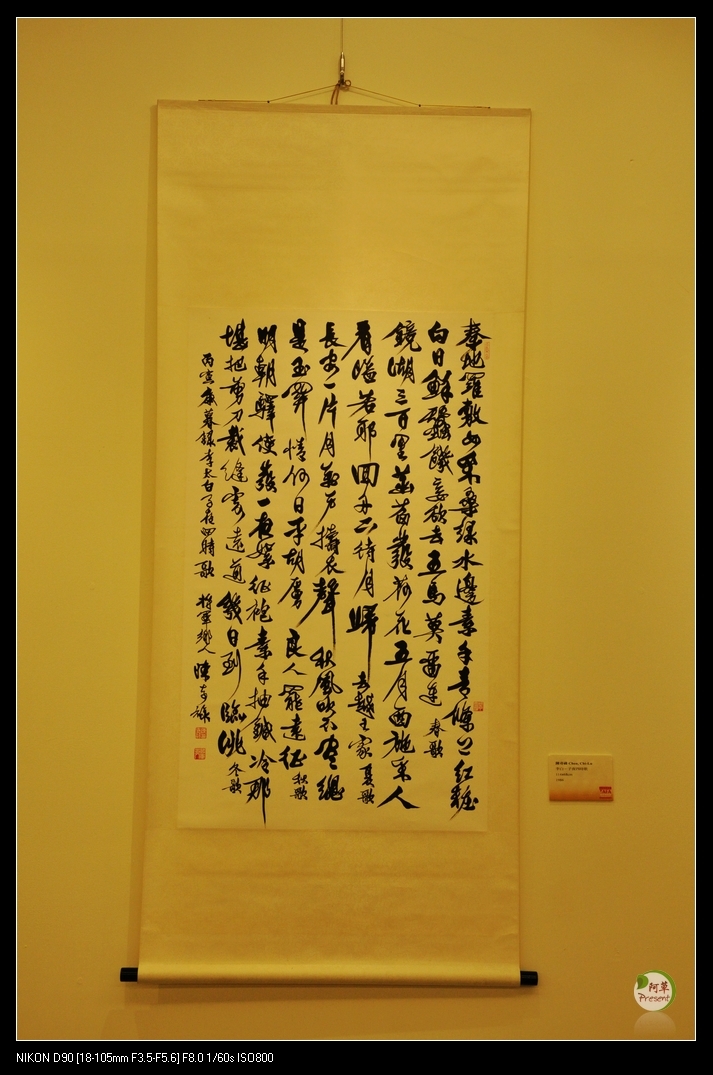 秦地羅敷女采桑綠水邊素手青條上紅粧
白日鮮蠶饑妾欲去五馬莫留連 春歌
鏡湖三百里菡萏發荷花五月西施采人
看隘若耶回舟不待月歸去越王家 夏歌
長安一片月萬戶擣衣聲秋風吹不盡總
是玉關情何日平胡虜良人罷遠征 秋歌
明朝驛使發一夜絮征袍素手抽鍼冷那
堪把剪刀裁縫寄遠道幾日到臨洮 冬歌
丙寅歲暮錄李太白子夜四時歌 將軍鄉人 陳奇祿
陳奇祿 Chen, Chi-Lu
阿草
Present
NIKON D90 [18-105mm F3.5-F5.6] F8.0 1/60s ISO800